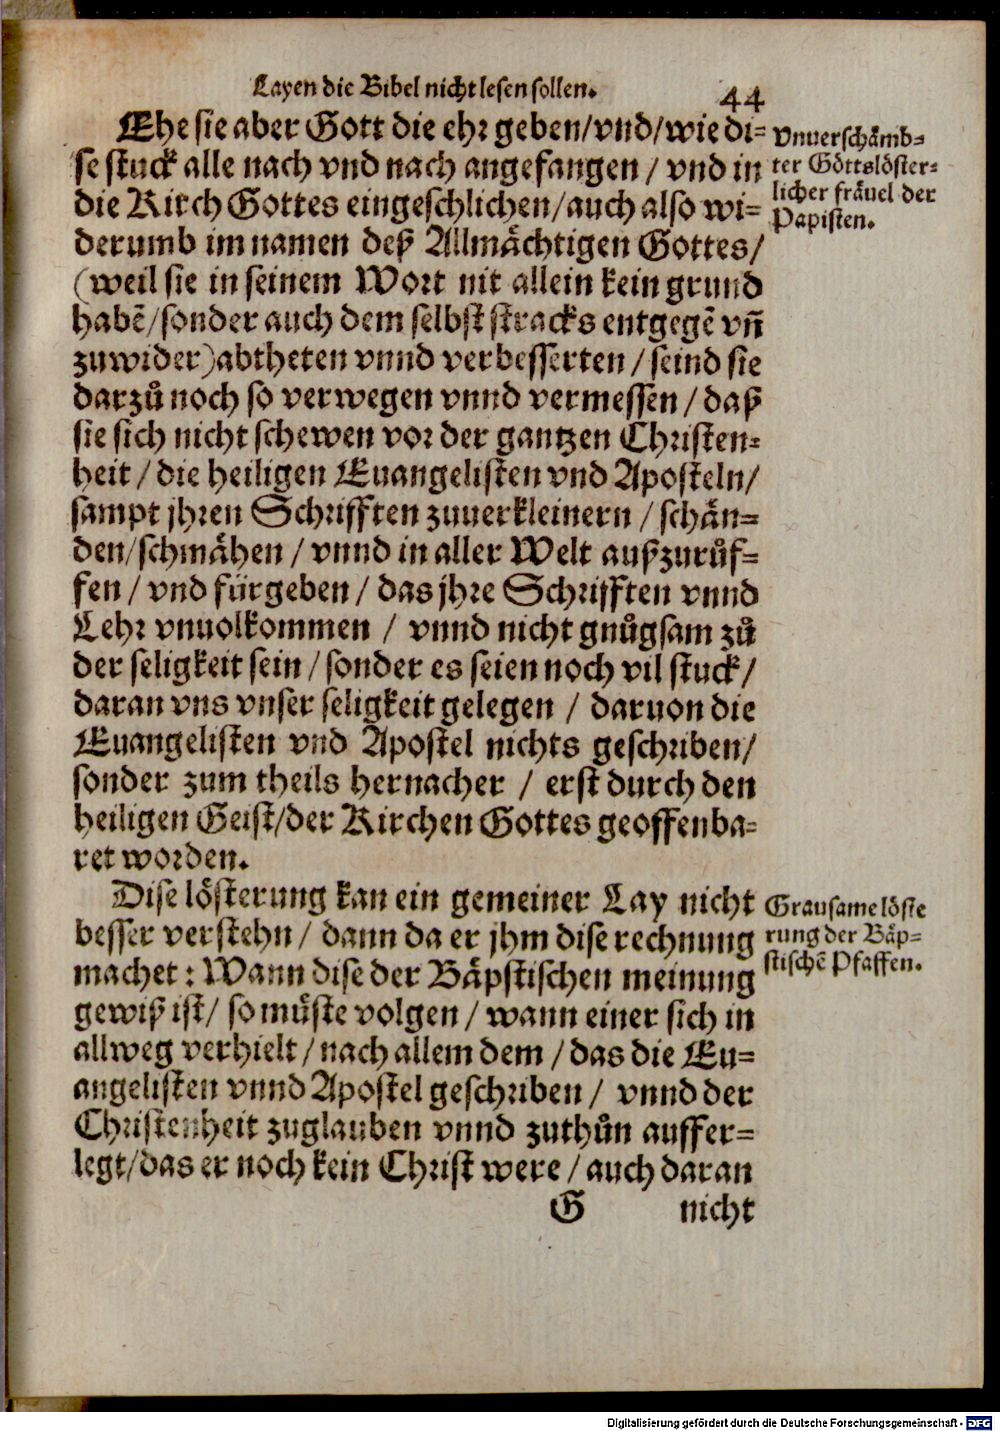 Layen die Bibel nicht lesen sollen. 44
Ehe sie aber Gott die ehr geben/vnd/wie di=
se stuck alle nach vnd nach angefangen / vnd in
die Kirch Gottes eingeschlichen/auch also wi=
derumb im namen deß Allmächtigen Gottes/
(weil sie in seinem Wort nit allein kein grund
habẽ/sonder auch dem selbst stracks entgegẽ vñ
zuwider)abtheten vnnd verbesserten / seind sie
darzů noch so verwegen vnnd vermessen / daß
sie sich nicht schewen vor der gantzen Christen=
heit / die heiligen Euangelisten vnd Aposteln/
sampt jhren Schrifften zuuerkleinern / schän=
den/schmähen / vnnd in aller Welt außzurůf=
fen / vnd fürgeben / das jhre Schrifften vnnd
Lehr vnuolkommen / vnnd nicht gnůgsam zů
der seligkeit sein / sonder es seien noch vil stuck/
daran vns vnser seligkeit gelegen / daruon die
Euangelisten vnd Apostel nichts geschriben/
sonder zum theils hernacher / erst durch den
heiligen Geist/der Kirchen Gottes geoffenba=
ret worden.
Dise lösterung kan ein gemeiner Lay nicht
besser verstehn / dann da er jhm dise rechnung
machet : Wann dise der Bäpstischen meinung
gewiß ist/ so müste volgen / wann einer sich in
allweg verhielt / nach allem dem / das die Eu=
angelisten vnnd Apostel geschriben / vnnd der
Christenheit zuglauben vnnd zuthůn auffer=
legt/das er noch kein Christ were / auch daran
G nicht
Vnuerschämb=
ter Gottslöster=
licher fräuel der
Papisten.
Grausame löste
rung der Bäp=
stischẽ Pfaffen.
Digitalisierung gefördert durch die Deutsche Forschungsgemeinschaft - DFG